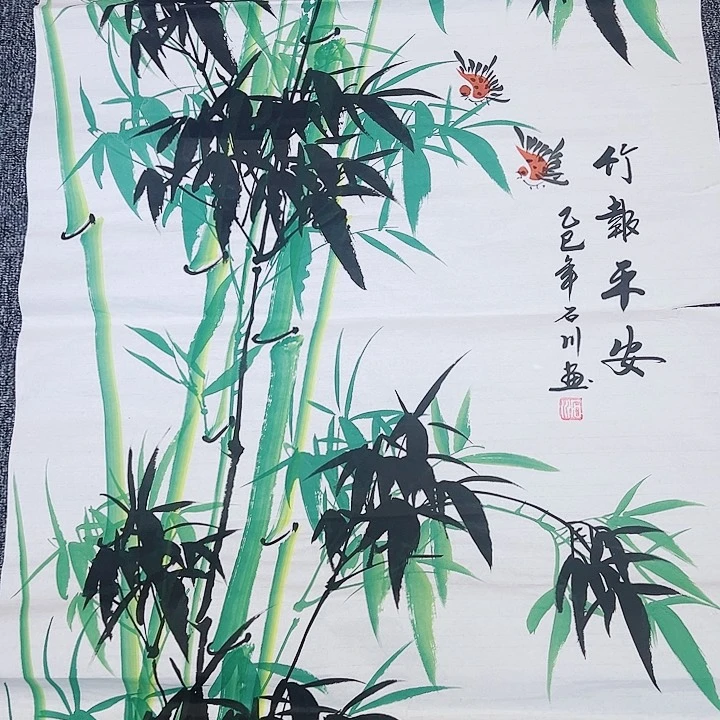 竹報平安
乙巳年石川画